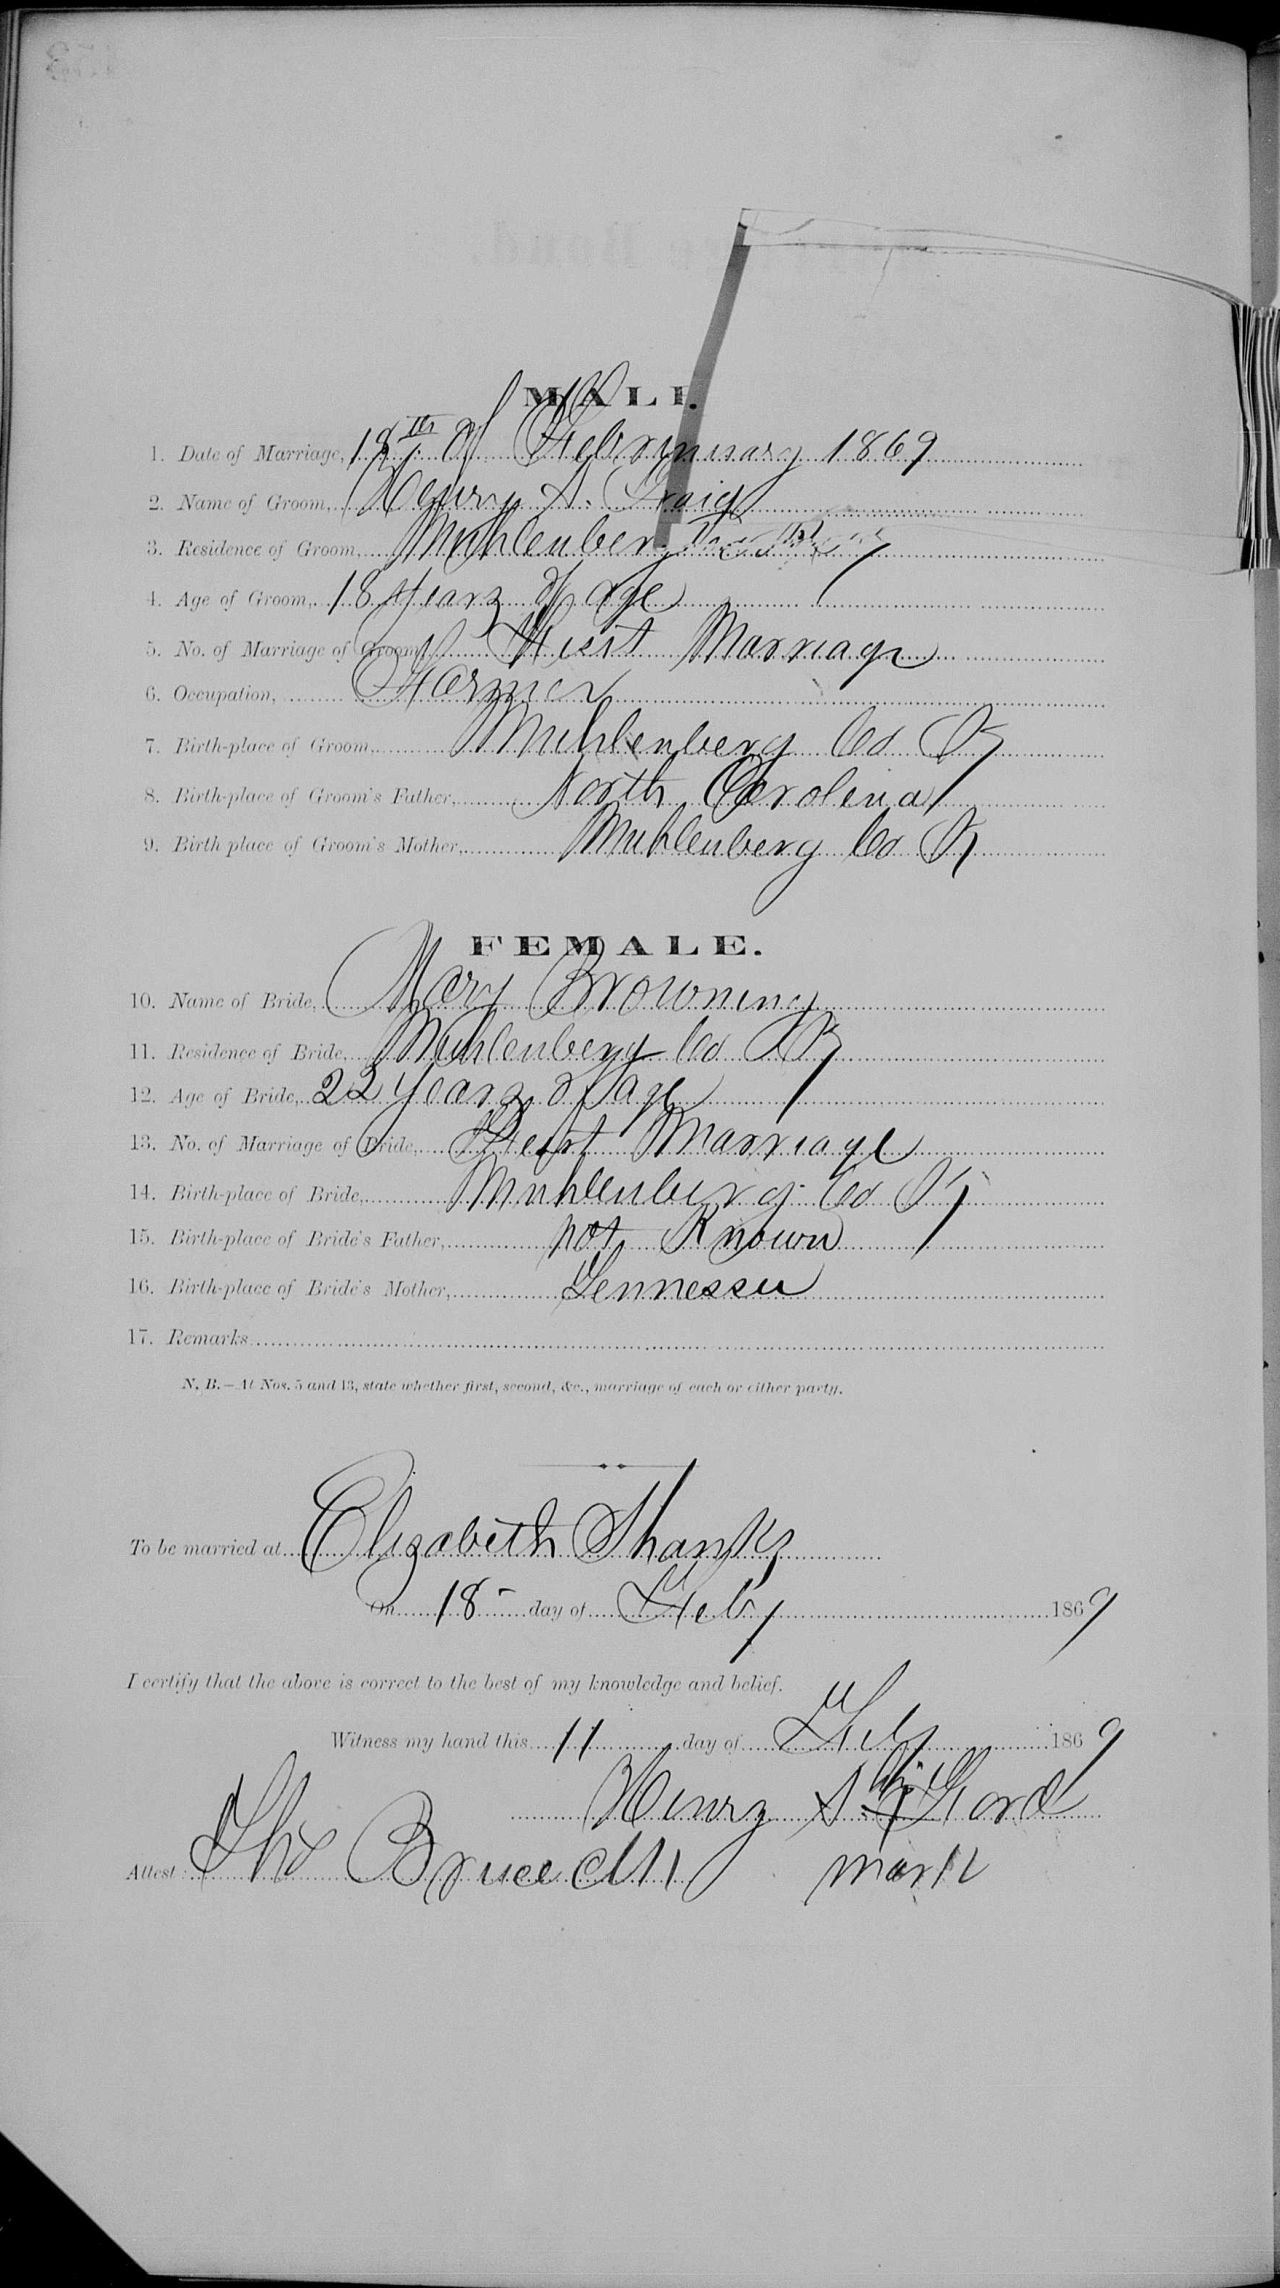 MALE.
1. Date of Marriage, 18th of February 1869
2. Name of Groom, Henry S. Craig
3. Residence of Groom, Muhlenberg
4. Age of Groom, 18 years of age
5. No. of Marriage of Groom, First Marriage
6. Occupation, Farmer
7. Birth-place of Groom, Muhlenberg Co Ky
8. Birth-place of Groom's Father, North Carolina
9. Birth place of Groom's Mother, Muhlenberg Co Ky
FEMALE.
10. Name of Bride, Mary Browning
11. Residence of Bride, Muhlenberg Co Ky
12. Age of Bride, 22 years of age
13. No. of Marriage of Bride, First Marriage
14. Birth-place of Bride, Muhlenberg Co Ky
15. Birth-place of Bride's Father, not Known
16. Birth-place of Bride's Mother, Tennessee
17. Remarks
N. B.—At Nos. 5 and 13, state whether first, second, &c., marriage of each or either party.
To be married at Elizabeth Shanks
On 18 day of Feby 1869
I certify that the above is correct to the best of my knowledge and belief.
Witness my hand this 11 day of Feby 1869
Henry S.
Attest: Tho Bruce Clk mark